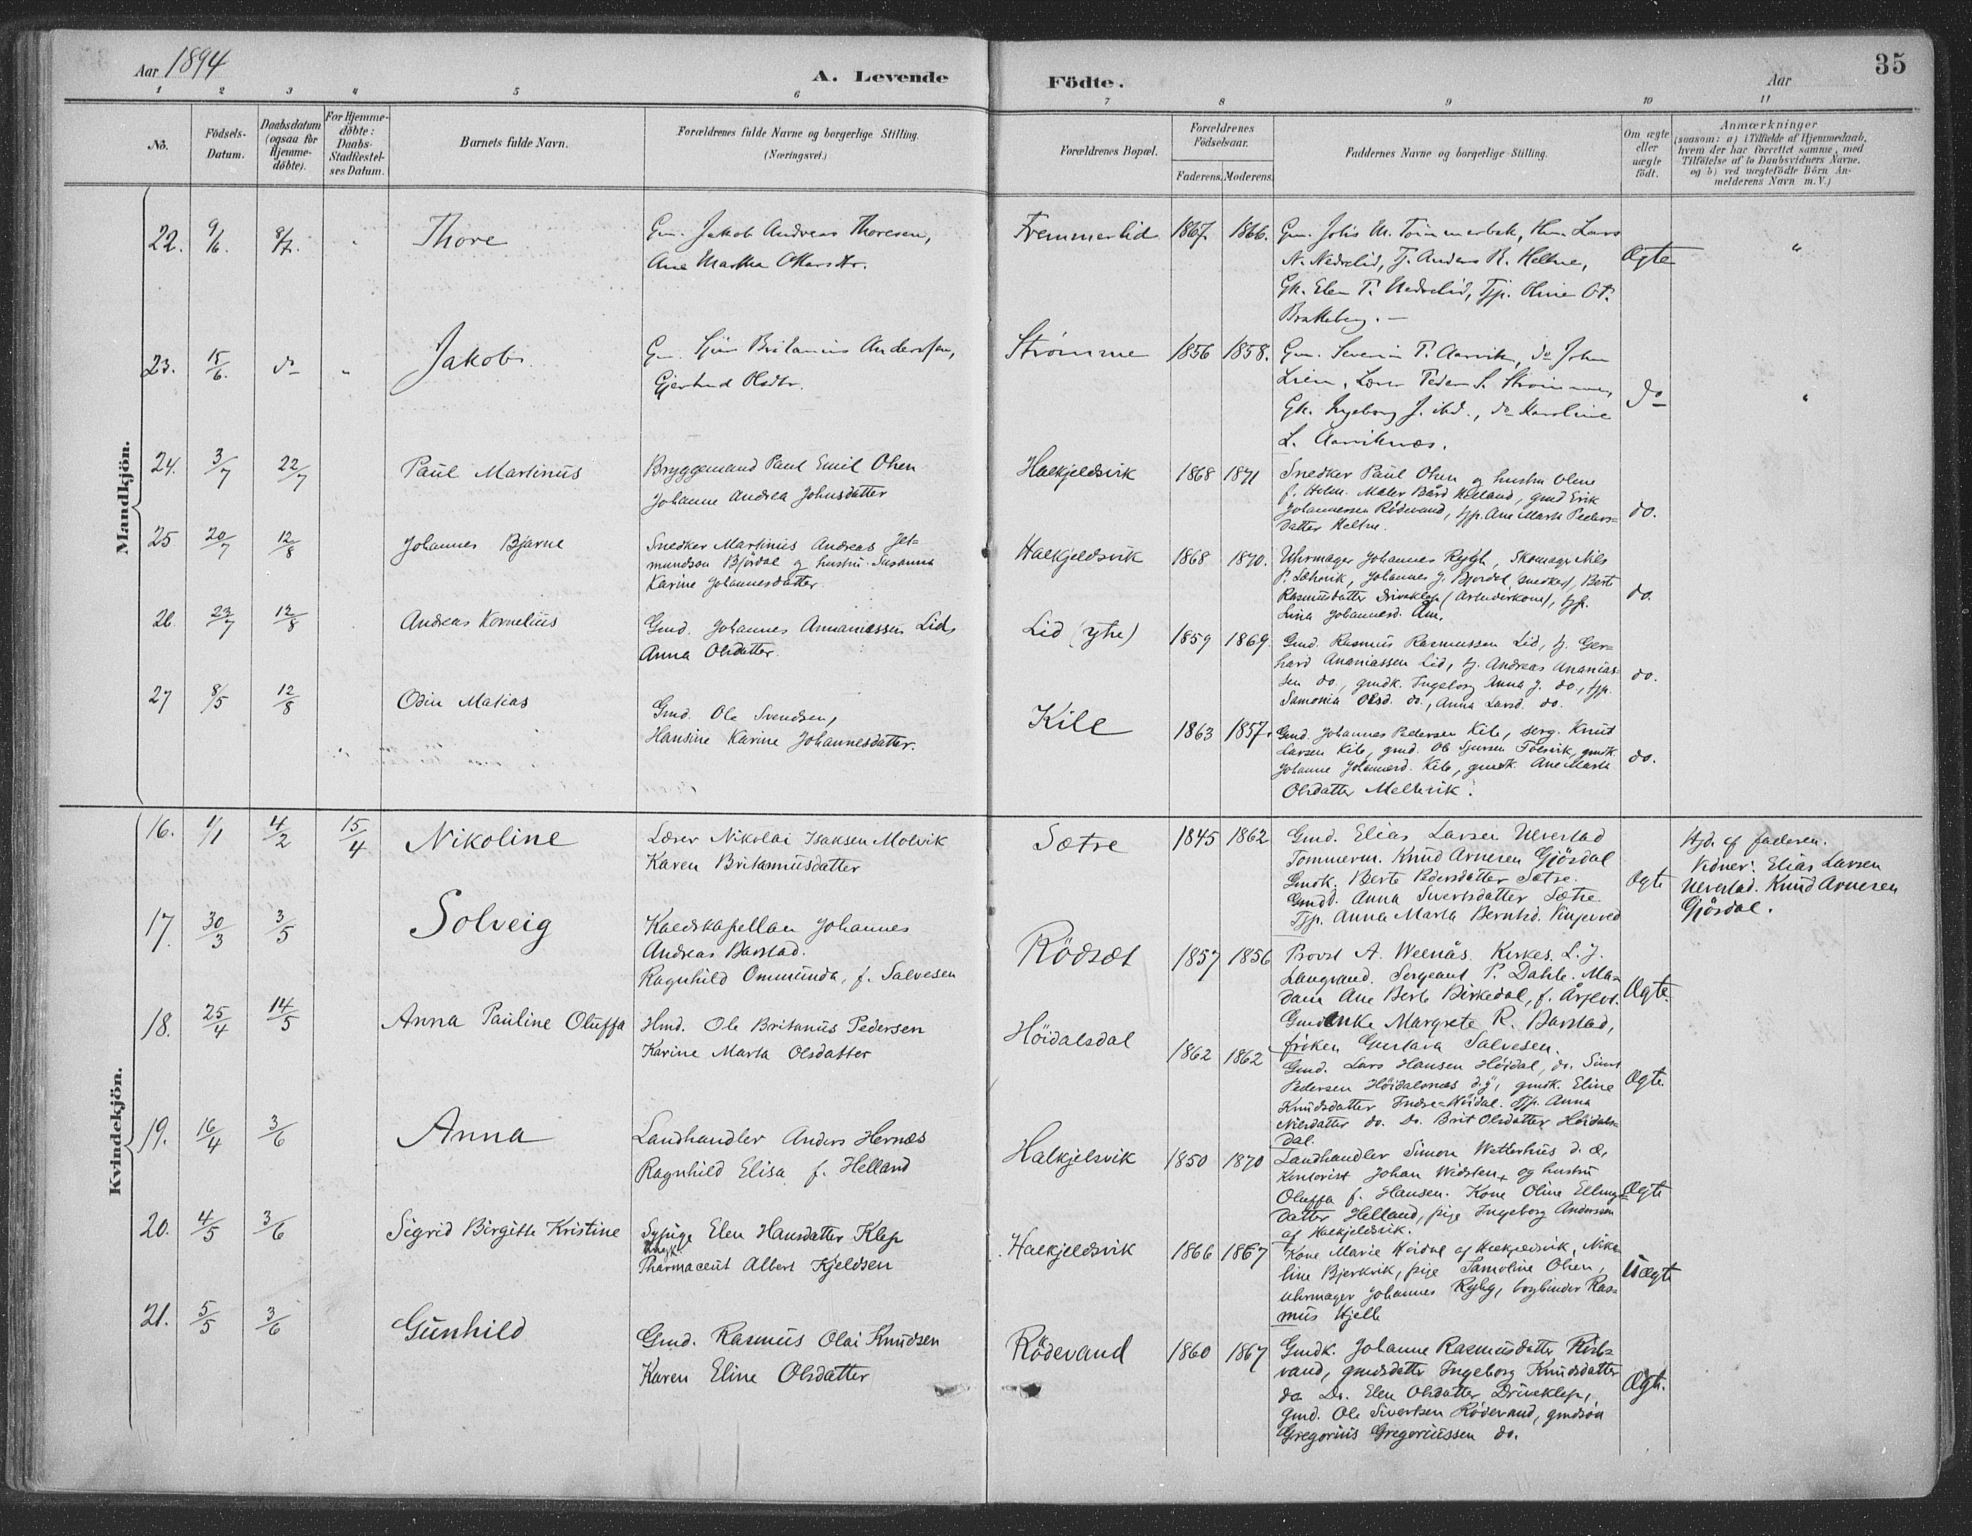 Aar 1894
A. Levende
Födte.
Aar
35
1 2 3 4 5 6 7 8 9 10 11
No.
Födsels-Datum.
Daabsdatum (ogsaa for Hjemme-döbte).
For Hjemme-döbte: Daabs-Stadfæstel-ses Datum.
Barnets fulde Navn.
Forældrenes fulde Navne og borgerlige Stilling.
(Næringsvei.)
Forældrenes Bopæl.
Forældrenes Födselsaar.
Faderens. Moderens.
Faddernes Navne og borgerlige Stilling.
Om ægte eller uægte födt.
Anmærkninger
(saasom: a) i Tilfælde af Hjemmedaab,
hvem der har forrettet samme, med
Tilföielse af to Daabsvidners Navne.
og b) ved uægtefödte Börn An-
melderens Navn m. V.)
Mandkjön.
22. 9/6. 8/7. Thore
Gm. Jakob Andreas Thoresen,
Ane Martha
Fremmerlid 1867. 1866.
Gm. M. Tommerbak, Lars
N. Nedrelid, Tj. Anders R. Heltne,
Gk. Elen T. Nedrelid, Tjp. Oline O. T.
Brakkeberg. —
Ægte "
23. 15/6. do " Jakob
Gm. Britanius Anderssen,
Gjertrud Olsdtr.
Strömme 1856 1858.
Gm. Severin T. Aarvik, do John
Lien, Peder S. Strömme,
Gk. Ingeborg J. ibd., do Karoline
L. Aarviknæs.
do "
24. 3/7 22/7 Paul Martinus
Bryggemand Paul Emil Olsen
Johanne Andrea Johnsdatter
Halkjeldsvik 1868 1871
Snedker Paul Olsen og hustru Oline
f. Holm. Maler Bård Helland, gmd Erik
Johannessen Rödevand, tjp. Ane Marte Peders-
datter Heltne.
do.
25 20/7 12/8 Johannes Bjarne
Snedker Martinus Andreas Jet-
mundson Björdal og hustru Susanna
Karine Johannesdatter.
Halkjeldsvik 1868 1870.
Uhrmager Johannes Rygh, Skomager Nils
P. Löhvik, Johannes J. Björdal (snedker), Berte
Rasmusdatter Driveklep (Arbeiderkone), tjp.
Lina Johannesd. Aam.
do.
26. 23/7 12/8 Andreas Kornelius
Gmd. Johannes Ananiassen Lid,
Anna Olsdatter.
Lid (ytre) 1859 1869.
Gmd. Rasmus Rasmussen Lid, tj. Ger-
hard Ananiassen Lid, tj. Andreas Ananias-
sen do, gmdk. Ingeborg Anna J. do., tjp.
Samonia Olsd. do, Anna Larsd. do.
do.
27 8/5 12/8 Odin Matias
Gmd. Ole Svendsen,
Hansine Karine Johannesdatter.
Kile 1863 1857.
Gmd. Johannes Pedersen Kile, serg. Knut
Larsen Kile, gmd. Ole Sjursen gmdk
Johanne Johannesd. Kile, gmdk. Ane Marta
Olsdatter Melkevik.
do.
Kvindekjön.
16. 1/1 4/2 15/4 Nikoline
Lærer Nikolai Isaksen Molvik
Karen Britanniusdatter
Sætre 1845 1862
Gmd. Elias Larsen Ulvestad
Tommerm. Knud Arnesen Gjösdal
Gmdk. Berte Pedersdatter Sætre.
Gmdd. Anna Sivertsdatter Sætre
Tjp. Anna Marta Berntsd. Vinjevold
Ægte
Hjd. af faderen.
Vidner: Elias Larsen
Ulvestad. Knud Arnesen
Gjösdal.
17. 30/3 3/5 Solveig
Kaldskapellan Johannes
Andreas Barstad.
Ragnhild Ommunda, f. Salvesen
Rödset 1857 1856
Provst A. Weenås. Kirkes. L. J.
Langvand. Sergeant P. Dahle. Ma-
dam Ane Berte Birkedal, f. Årflot.
Gmdenke Margrete R. Barstad,
fröken Gustava Salvesen.
Ægte.
18. 25/4 14/5 Anna Pauline Oluffa
Hmd. Ole Britanus Pedersen
Karine Marta Olsdatter
Höidalsdal 1862 1862
Gmd. Lars Hansen Höidal, do. Simt
Pedersen Höidalsnæs d.y., gmdk. Eline
Knudsdatter Indre-Höidal. Tjp. Anna
Nilsdatter do. do. Brit Olsdatter Höidals-
dal.
Ægte.
19. 16/4 3/6 Anna
Landhandler Anders Hernæs
Ragnhild Elisa f. Helland
Halkjelsvik 1850 1870
Landhandler Simon Wetterhus d. æ,
Kontorist Johan Widsten, og hustru
Oluffa f. Hansen. Kone Oline Ellings-
datter Helland, pige Ingeborg Andersen
af Halkjeldsvik.
Ægte
20. 4/5 3/6 Sigrid Birgitte Kristine
Sypige Elen Hansdatter Klep
Pharmaceut Albert Kjeldsen
Halkjeldsvik 1866 1867
Kone Marie Höidal af Halkjeldsvik, Niko-
line Bjerkvik, pige Tamoline Olsen,
uhrmager Johannes Rygh, bogbinder Ras-
mus Hjelle
Uægte
21. 5/5 3/6 Gunhild
Gmd. Rasmus Olai Knudsen
Karen Eline Olsdatter
Rödevand 1860 1867
Gmdk. Johanne Rasmusdatter Röde-
vand, gmdsdatter Ingeborg Knudsdatter
do Do. Elen Olsdatter Driveklep,
gmd. Ole Sivertsen Rödevand, gmdsön
Gregorius Gregoriussen do.
Ægte.